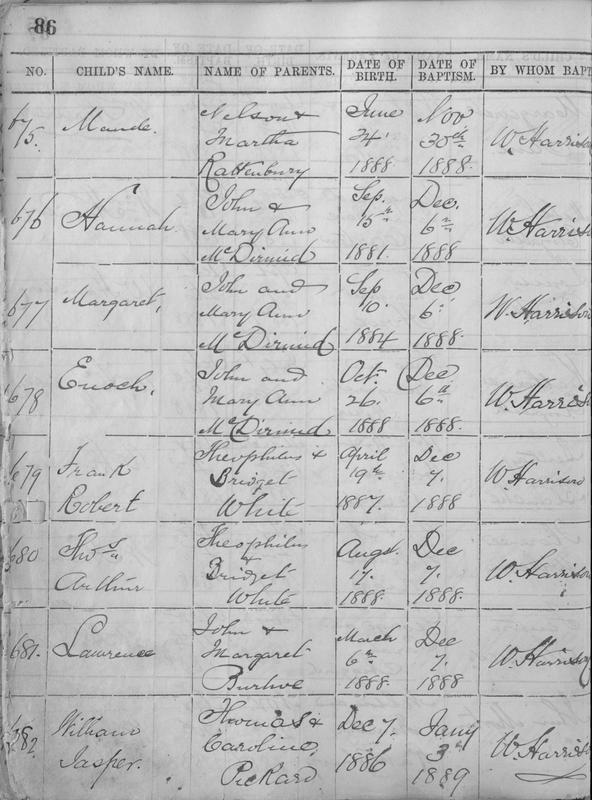 86
NO. CHILD'S NAME. NAME OF PARENTS. DATE OF BIRTH. DATE OF BAPTISM. BY WHOM BAPT
675. Maude. Nelson & Martha Rattenbury June 24 1888. Nov 30th 1888. W. Harrison
676 Hannah. John & Mary Ann McDirmid Sep. 15th 1881. Dec. 6th 1888 W. Harrison
677 Margaret, John and Mary Ann McDirmid Sep 10. 1884 Dec 6th 1888. W. Harrison
678 Enoch, John and Mary Ann McDirmid Oct. 26. 1888 Dec 6th 1888. W. Harrison
679 Frank Robert Theophilus & Bridget White April 19th 1887. Dec 7. 1888 W. Harrison
680 Thos Arthur Theophilus & Bridget White Augst. 17. 1888. Dec 7. 1888. W. Harrison
681. Lawrence John & Margaret March 6th 1888 Dec 7. 1888 W. Harrison
682. William Jasper. Thomas & Caroline Pickard Dec 7. 1886 Jany 3rd 1889 W. Harrison